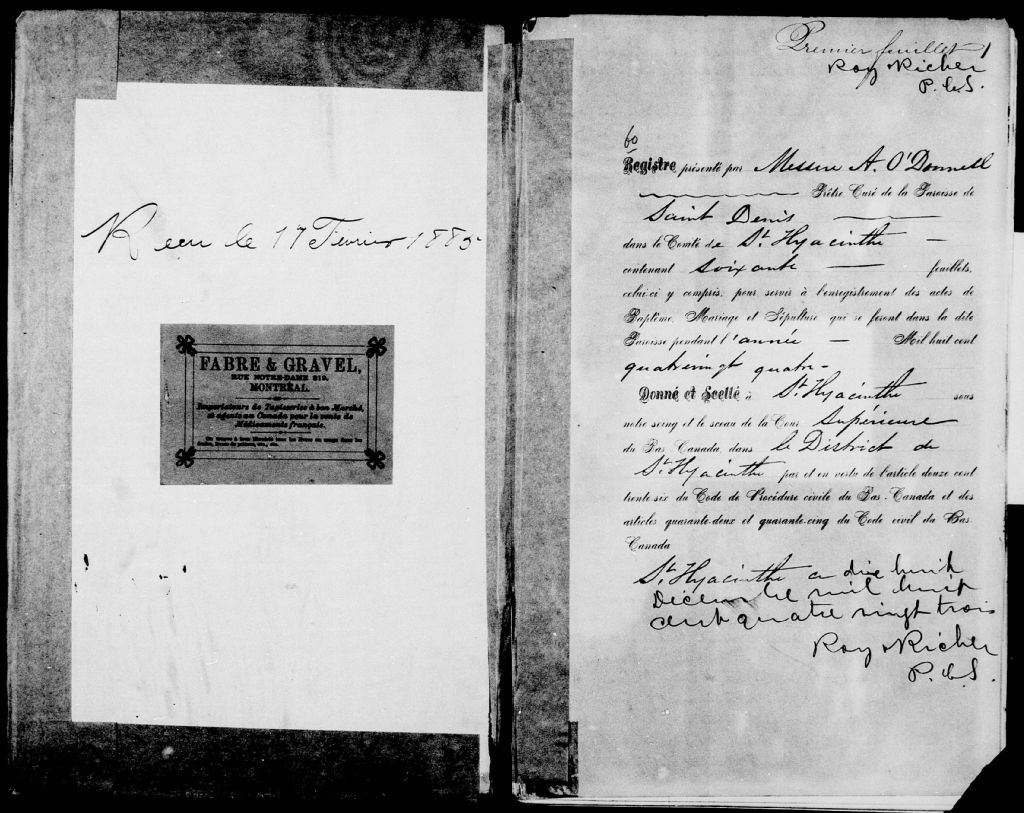 Recu le 17 Février 1885
FABRE & GRAVEL,
RUE NOTRE-DAME 219.
MONTRÉAL.
Importateurs de Tapisseries à bon Marché,
et agents au Canada pour la vente de
Médicaments français.
On trouve à leur librairie tous les livres en usage dans les
Premier feuillet 1
Roy & Richer
P. C. S.
60
Registre présenté par Messire A. O'Donnell
Prêtre, Curé de la Paroisse de
Saint Denis
dans le Comté de St. Hyacinthe
contenant soixante feuillets,
celui-ci y compris, pour servir à l'enregistrement des actes de
Baptême, Mariage et Sépulture qui se feront dans la dite
Paroisse pendant l'année Mil huit cent
quatrevingt quatre-
Donné et Scellé à St. Hyacinthe sous
notre seing et le sceau de la Cour Supérieure
du Bas-Canada, dans le District de
St. Hyacinthe par et en vertu de l'article douze cent
trente-six du Code de Procédure civile du Bas-Canada et des
articles quarante-deux et quarante-cinq du Code civil du Bas
Canada
St. Hyacinthe ce dix huit
Décembre mil huit
cent quatre vingt trois
Roy & Richer
P. C. S.